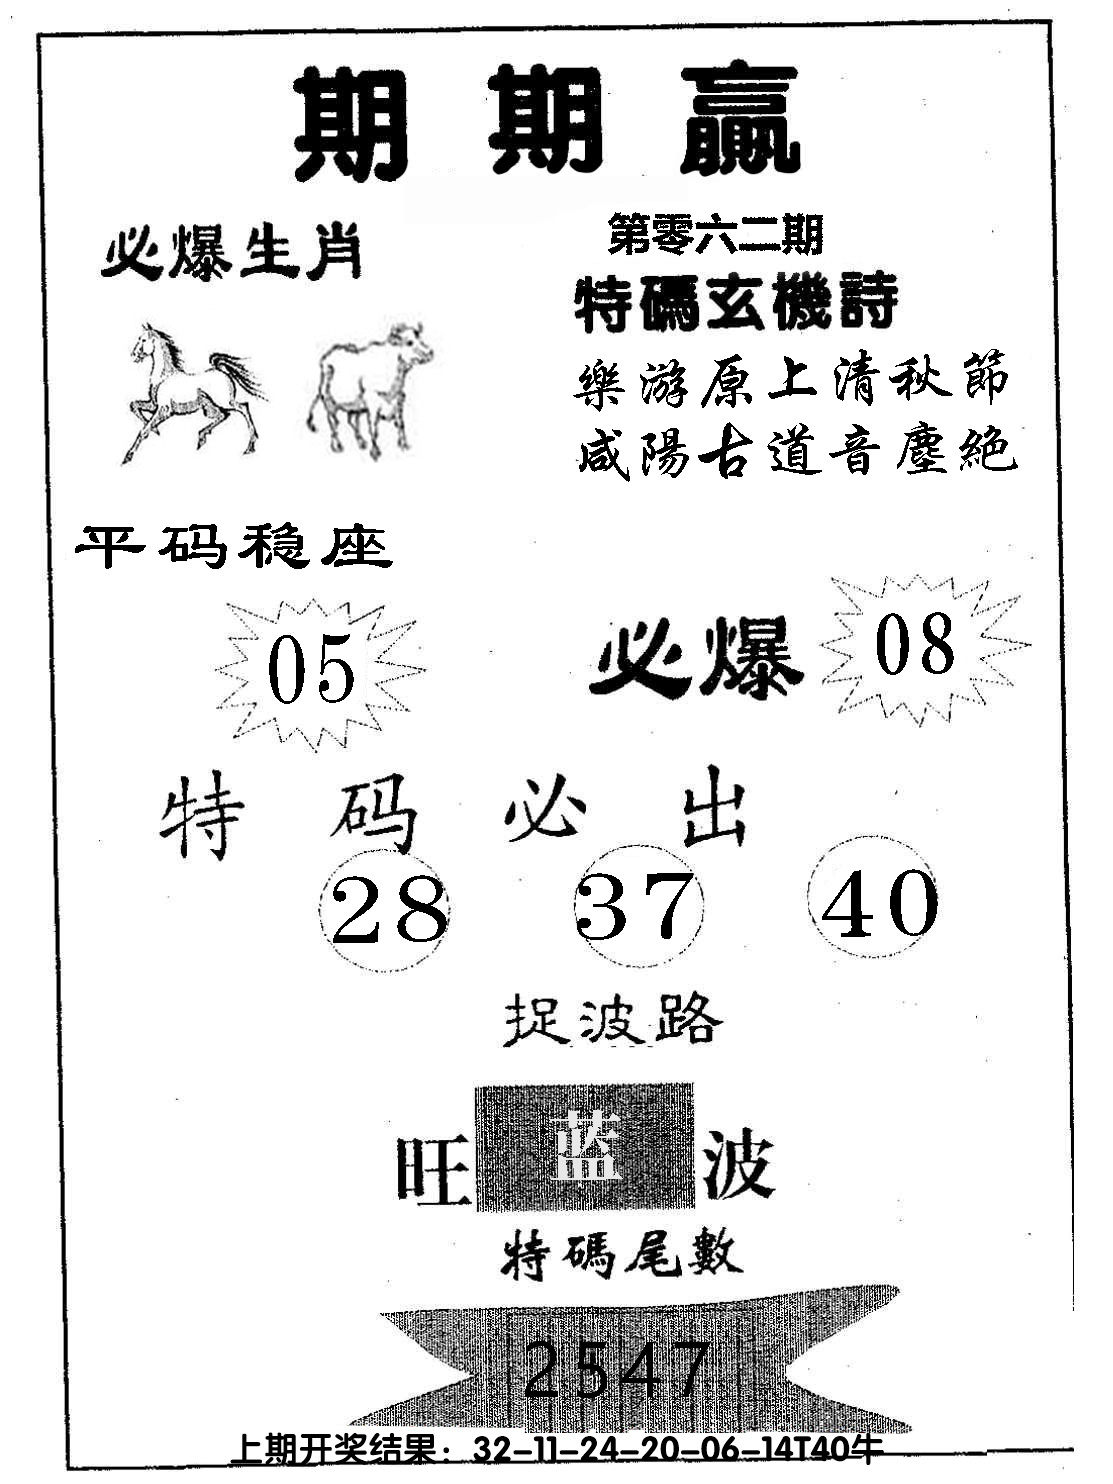 期期贏
必爆生肖
第零六二期
特碼玄機詩
樂游原上清秋節
咸陽古道音塵絕
平码稳座
05
必爆
08
特码必出
28 37 40
捉波路
旺蓝波
特碼尾數
2547
上期开奖结果：32-11-24-20-06-14T40牛